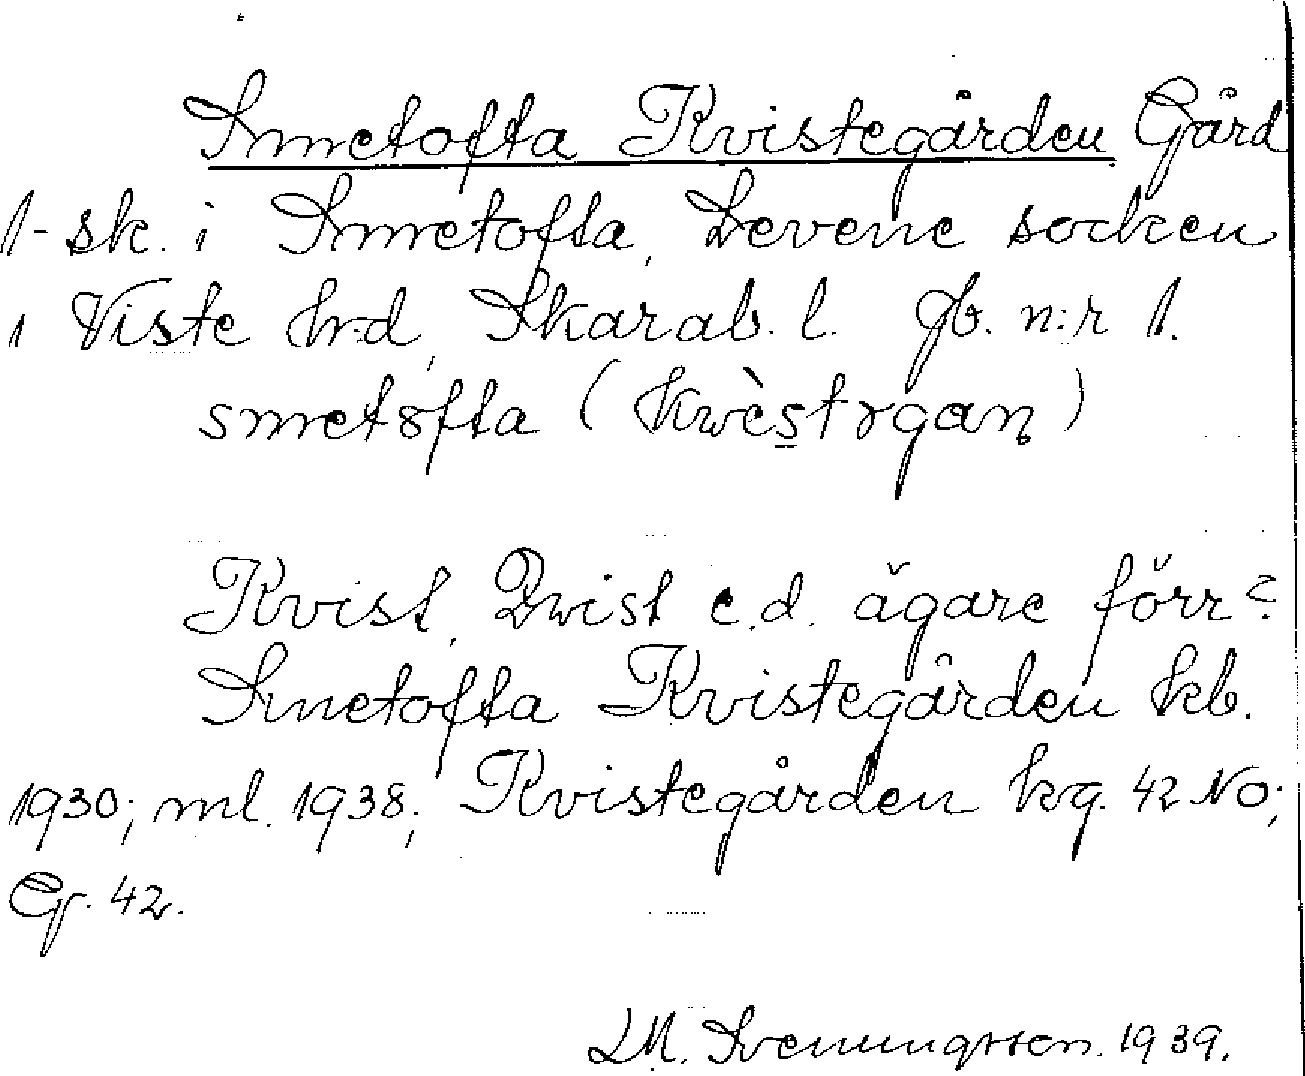 Smetofta Kvistegården Gård
1-sk. i Smetofta, Levene socken
i Viste h:d, Skarab. l. Jb. n:r 1.
smetofta (kwèstrgaɳ)
Kvist, Qwist e.d. ägare förr?
Smetofta Kvistegården kb.
1930; ml. 1938; Kvistegården kg. 42 NO;
Eg. 42.
LM. Svenungsson. 1939.